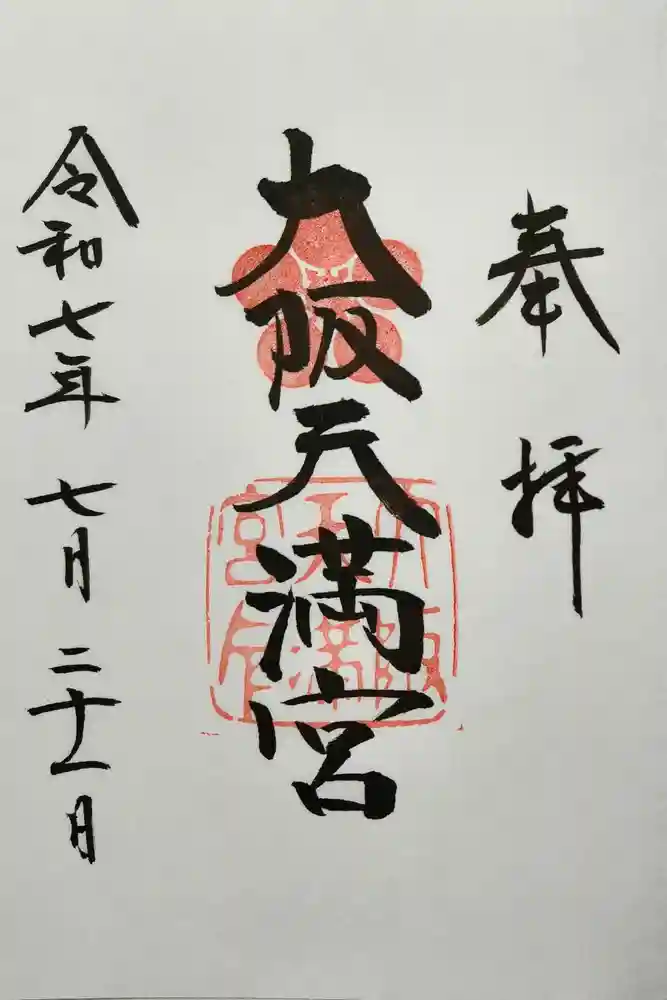 奉拝
大阪天満宮
大阪
天満
宮印
令和七年 七月 二十一日